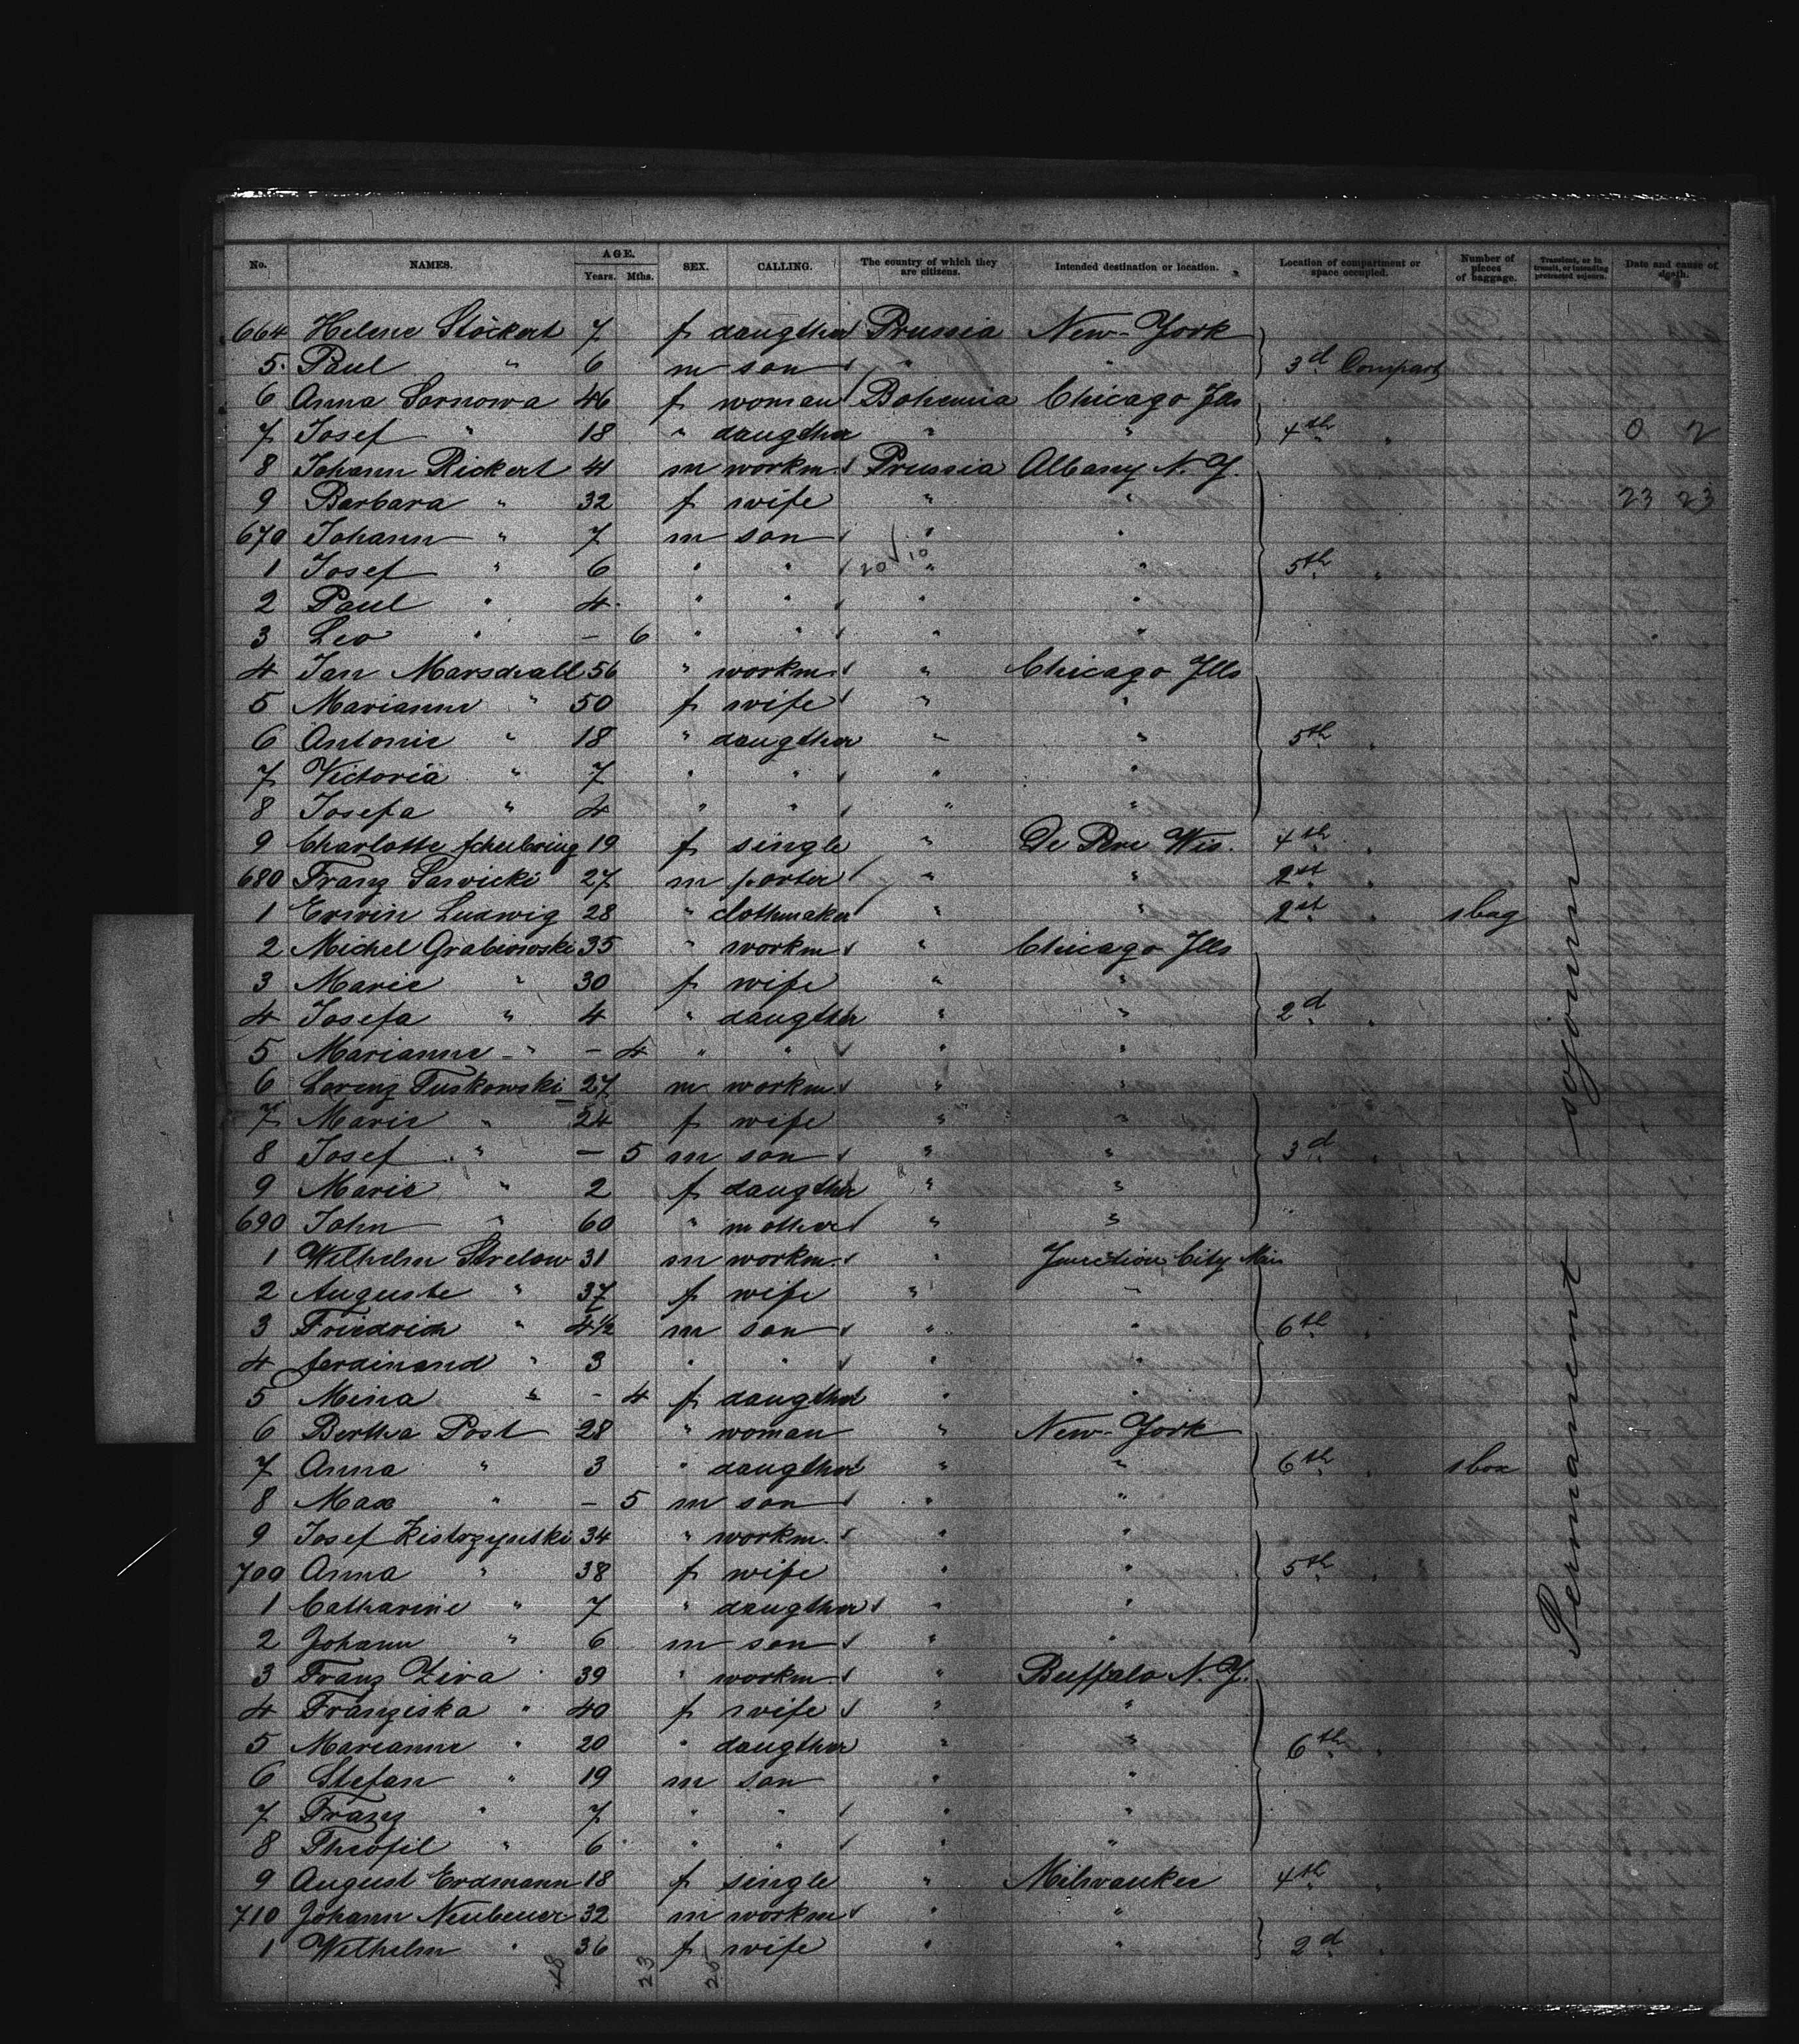 No. NAMES. AGE. Years. Mths. SEX. CALLING. The country of which they are citizens. Intended destination or location. Location of compartment or space occupied. Number of pieces of baggage. Transient, or in transit, or intending protracted sojourn. Date and cause of death.
664 Helene Stöckert 7 f daugther Prussia New-York
5. Paul " 6 m son " " 3d Compart
6 Anna Sarnowa 46 f woman Bohemia Chicago Ills
7 Josef " 18 " daugther " " 4th " 0 2
8 Johann Rickert 41 m workm. Prussia Albany N.Y.
9 Barbara " 32 f wife " " 23 23
670 Johann " 7 m son " "
1 Josef " 6 " " 20/10 " " 5th "
2 Paul " 4 " " " "
3 Leo " – 6 " " " "
4 Jan Marschall 56 " workm. " Chicago Ills
5 Marianne " 50 f wife " "
6 Antonie " 18 " daugther " " 5th "
7 Victoria " 7 " " " "
8 Josefa " 4 " " " "
9 Charlotte Scheibring 19 f single " De Pere Wis. 4th "
680 Franz Sawicki 27 m porter " " 2st "
1 Erwin Ludwig 28 " clothmaker " " 2st " 1 bag
2 Michel Grabowski 35 " workm " Chicago Ills
3 Marie " 30 f wife " "
4 Josefa " 4 " daugther " " 2d "
5 Marianne " – 4 " " " "
6 Lorenz Tuskowski 27 m workm. " "
7 Marie " 24 f wife " "
8 Josef " – 5 m son " " 3d "
9 Marie " 2 f daugther " "
690 John " 60 " mother " "
1 Wilhelm Strelow 31 m workm. " Junction City
2 Auguste " 37 f wife " "
3 Friedrich " 4½ m son " " 6th "
4 Ferdinand " 3 " " " "
5 Mina " – 4 f daugther " "
6 Bertha Post 28 " woman " New-York
7 Anna " 3 " daugther " " 6th " 1 box
8 Max " – 5 m son " "
9 Josef 34 " workm. " "
700 Anna " 38 f wife " " 5th "
1 Catharine " 7 " daugther " "
2 Johann " 6 m son " "
3 Franz Zira 39 " workm. " Buffalo N.Y.
4 Franziska " 40 f wife " "
5 Marianne " 20 " daugther " " 6th "
6 Stefan " 19 m son " "
7 Franz " 7 " " " "
8 Theofil " 6 " " " "
9 August Erdmann 18 f single " Milwaukee 4th "
710 Johann Neubeuer 32 m workm " "
1 Wilhelm " 36 f wife " " 2d "
48 23 25
Permanent sojourn